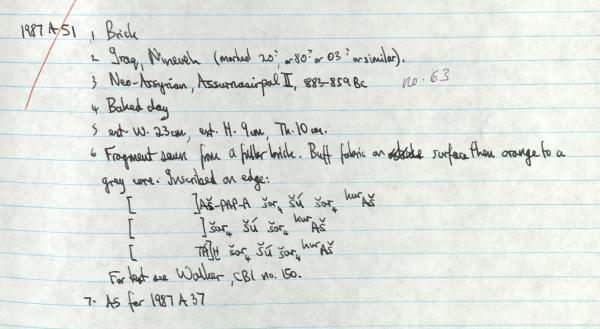 1987 A 51 1 Brick
2 Iraq, Nineveh (marked 20?, or 80? or 03? or similar).
3 Neo-Assyrian, Assurnasirpal II, 883-859 BC no. 63
4 Baked clay
5 ext. W. 23cm, ext. H. 9cm, Th. 10 cm.
6 Fragment sawn from a fuller brick. Buff fabric on surface then orange to a
grey core. Inscribed on edge:
[ ]AŠ-PAP-A šar₄ ŠÚ šar₄ ᵏᵘʳAŠ
[ ] šar₄ ŠÚ šar₄ ᵏᵘʳAŠ
[ TA]H šar₄ ŠÚ šar₄ ᵏᵘʳAŠ
For text see Walker, CBI no. 150.
7. As for 1987 A 37